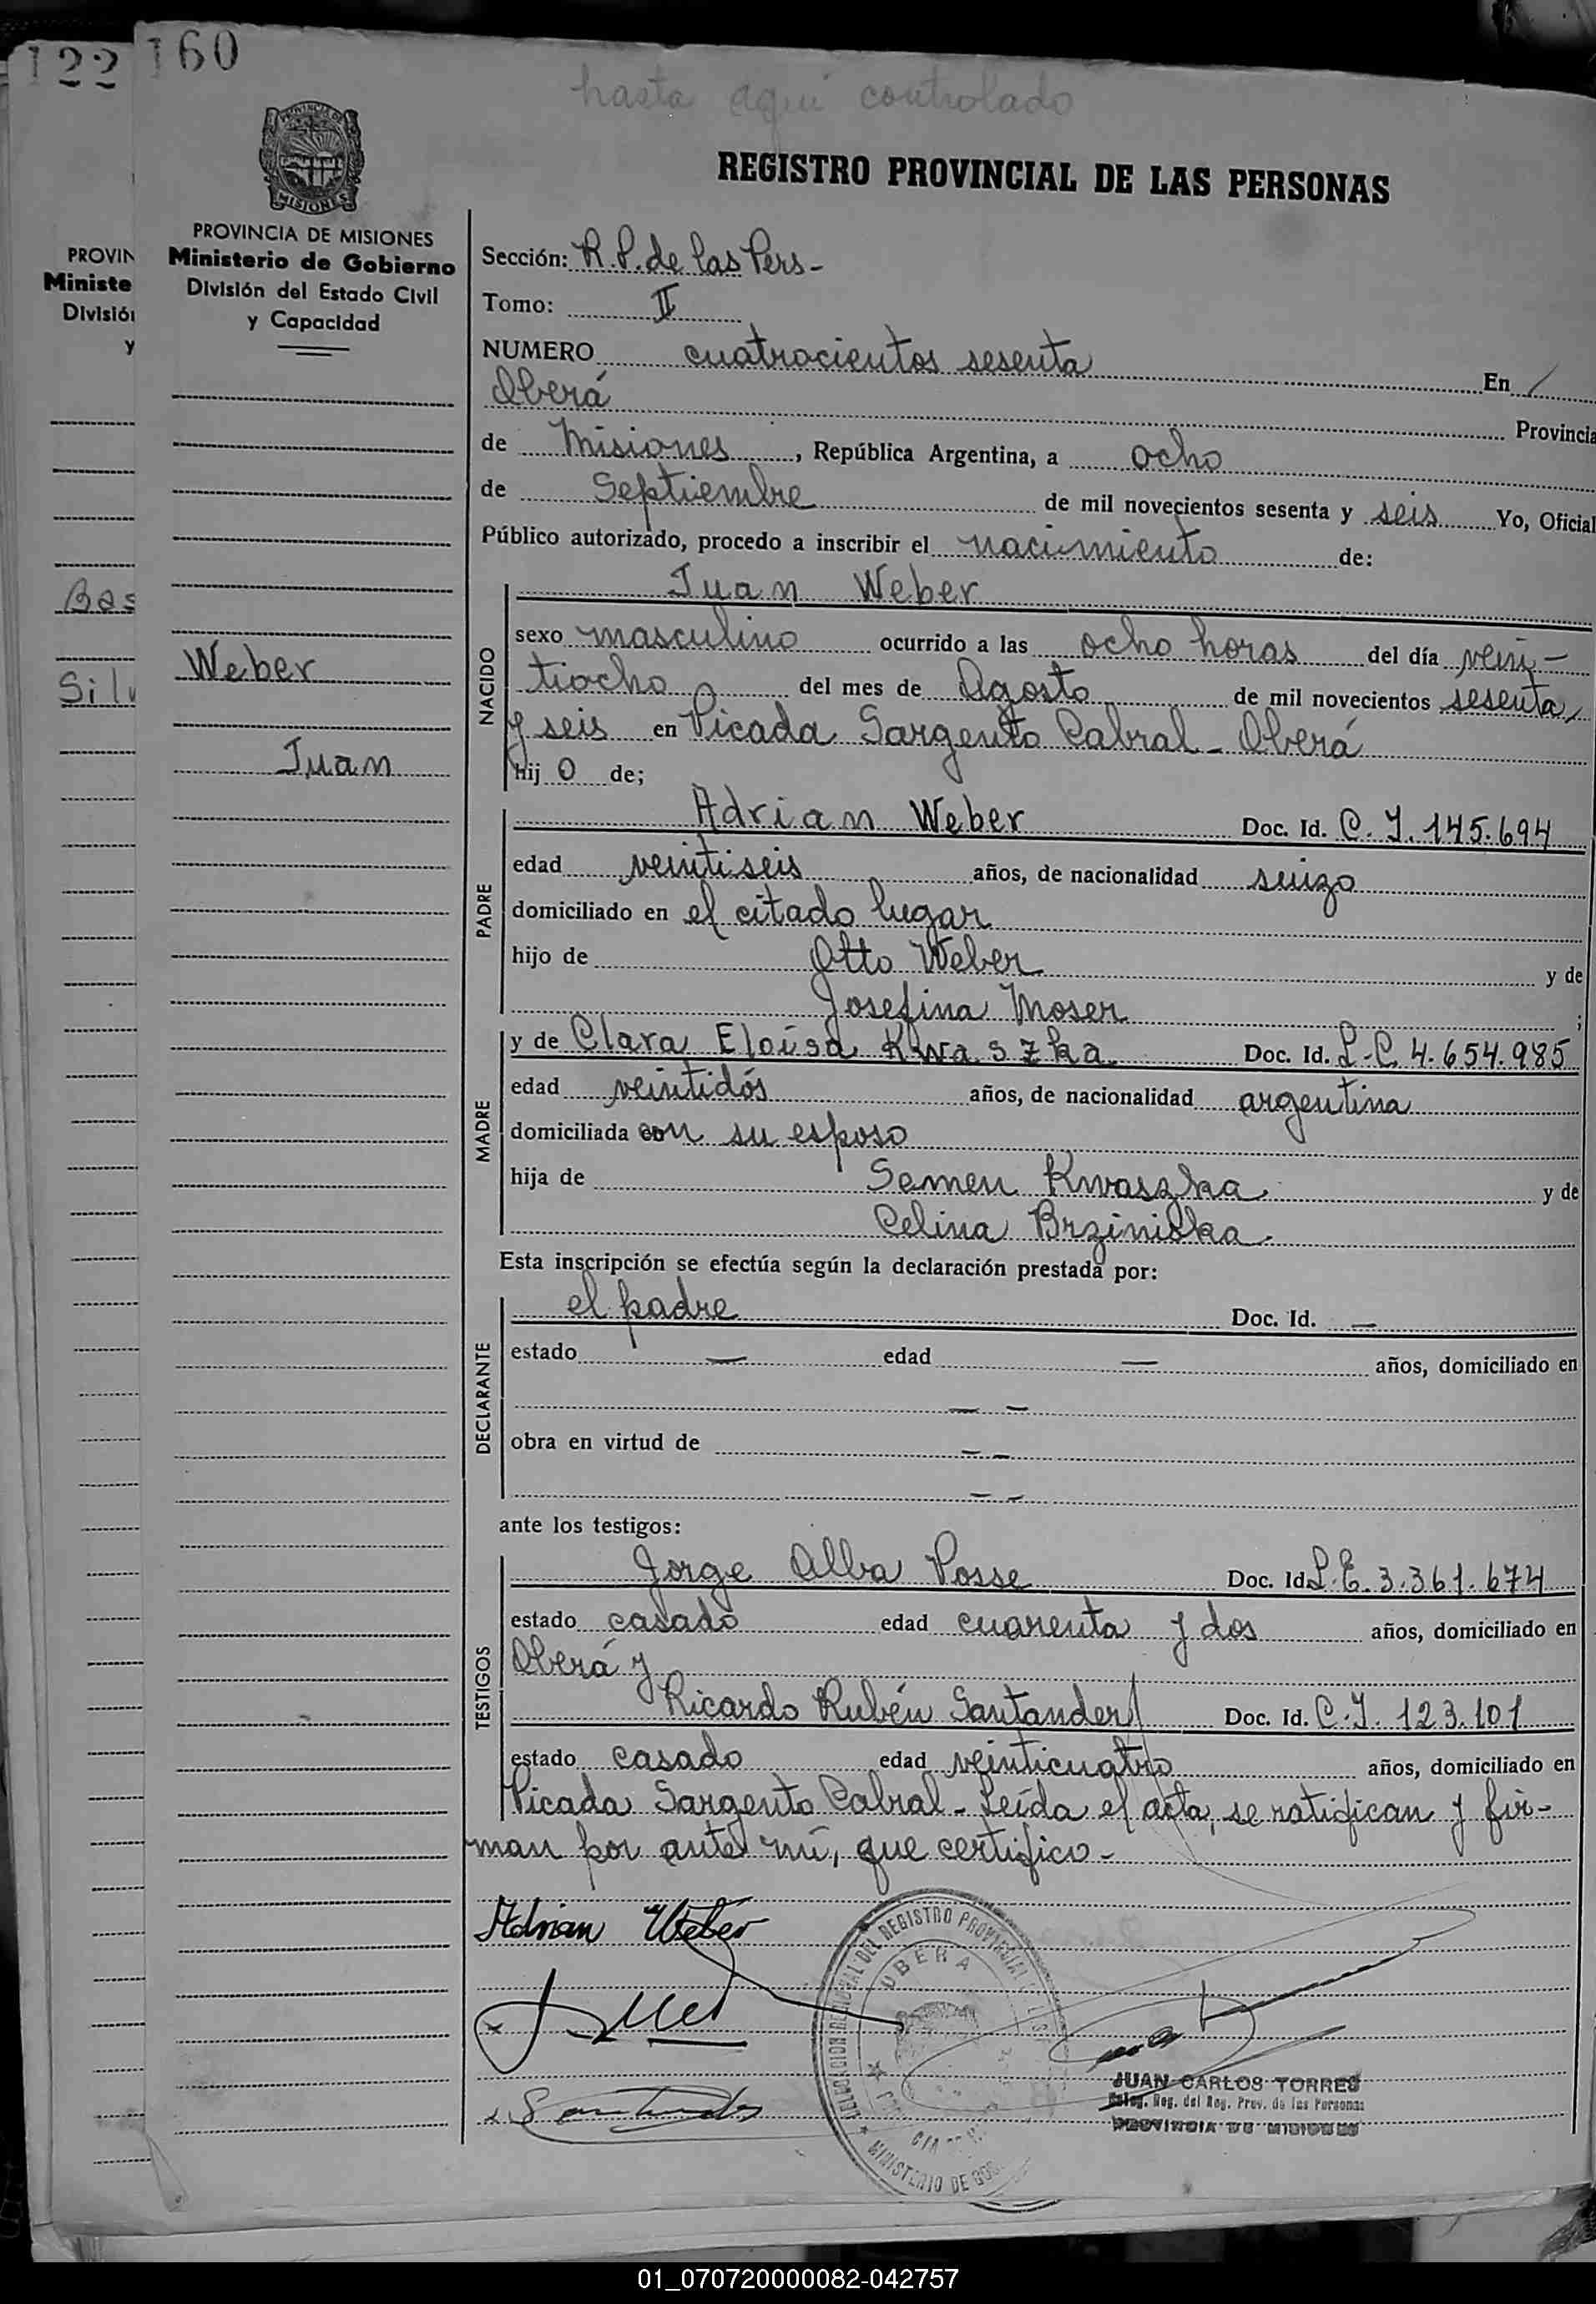 122 160
hasta aqui controlado
REGISTRO PROVINCIAL DE LAS PERSONAS
MISIONES
PROVINCIA DE MISIONES
Ministerio de Gobierno
División del Estado Civil
y Capacidad
PROVIN
Ministe
Divisió
y
Bas
Silv
Weber
Juan
Sección: R.P. de las Pers-
Tomo: II
NUMERO cuatrocientos sesenta En /
Oberá Provincia
de Misiones, República Argentina, a ocho
de Septiembre de mil novecientos sesenta y seis Yo, Oficial
Público autorizado, procedo a inscribir el nacimiento de:
Juan Weber
NACIDO
sexo masculino ocurrido a las ocho horas del día vein-
tiocho del mes de Agosto de mil novecientos sesenta
y seis en Picada Sargento Cabral - Oberá
hij o de;
PADRE
Adrian Weber Doc. Id. C.I. 145.694
edad veintiseis años, de nacionalidad suizo
domiciliado en el citado lugar
hijo de Otto Weber y de
Josefina Moser ;
MADRE
y de Clara Eloisa Kwaszka Doc. Id. L.C. 4.654.985
edad veintidós años, de nacionalidad argentina
domiciliada con su esposo
hija de Semen Kwaszka y de
Celina Brziniska
Esta inscripción se efectúa según la declaración prestada por:
DECLARANTE
el padre Doc. Id. —
estado — edad — años, domiciliado en
— —
obra en virtud de — —
— —
ante los testigos:
TESTIGOS
Jorge Alba Posse Doc. Id. L.E. 3.361.674
estado casado edad cuarenta y dos años, domiciliado en
Oberá y
Ricardo Rubén Santander Doc. Id. C.I. 123.101
estado casado edad veinticuatro años, domiciliado en
Picada Sargento Cabral - Leída el acta, se ratifican y fir-
man por ante mí, que certifico-
Adrian Weber
DELEGACION REGIONAL DEL REGISTRO PROVINCIAL
OBERA
MINISTERIO DE GOB
JUAN CARLOS TORRES
Deleg. Reg. del Reg. Prov. de las Personas
PROVINCIA DE MISIONES
01_070720000082-042757